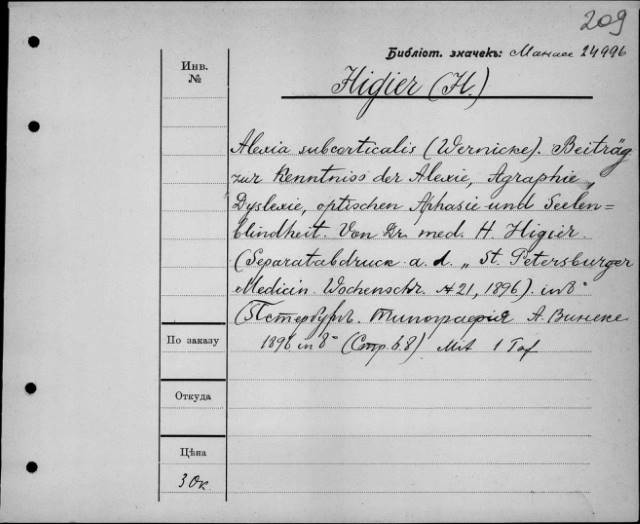 209
Библіот. значекъ: Манасе 14996
Инв.
№
Higier (H.)
Alexia subcorticalis (Wernicke). Beiträg
zur Kenntniss der Alexie, Agraphie,
Dyslexie, optischen Aphasie und Seelen=
blindheit. Von Dr. med. H. Higier.
(Separatabdruck a. d. „ St. Petersburger
Medicin. Wochenschr. № 21, 1896). in 8°
(Петербургъ. Типографія А. Винеке
По заказу
1896 in 8° (Стр. 8) Mit 1 Taf
Откуда
Цѣна
30к